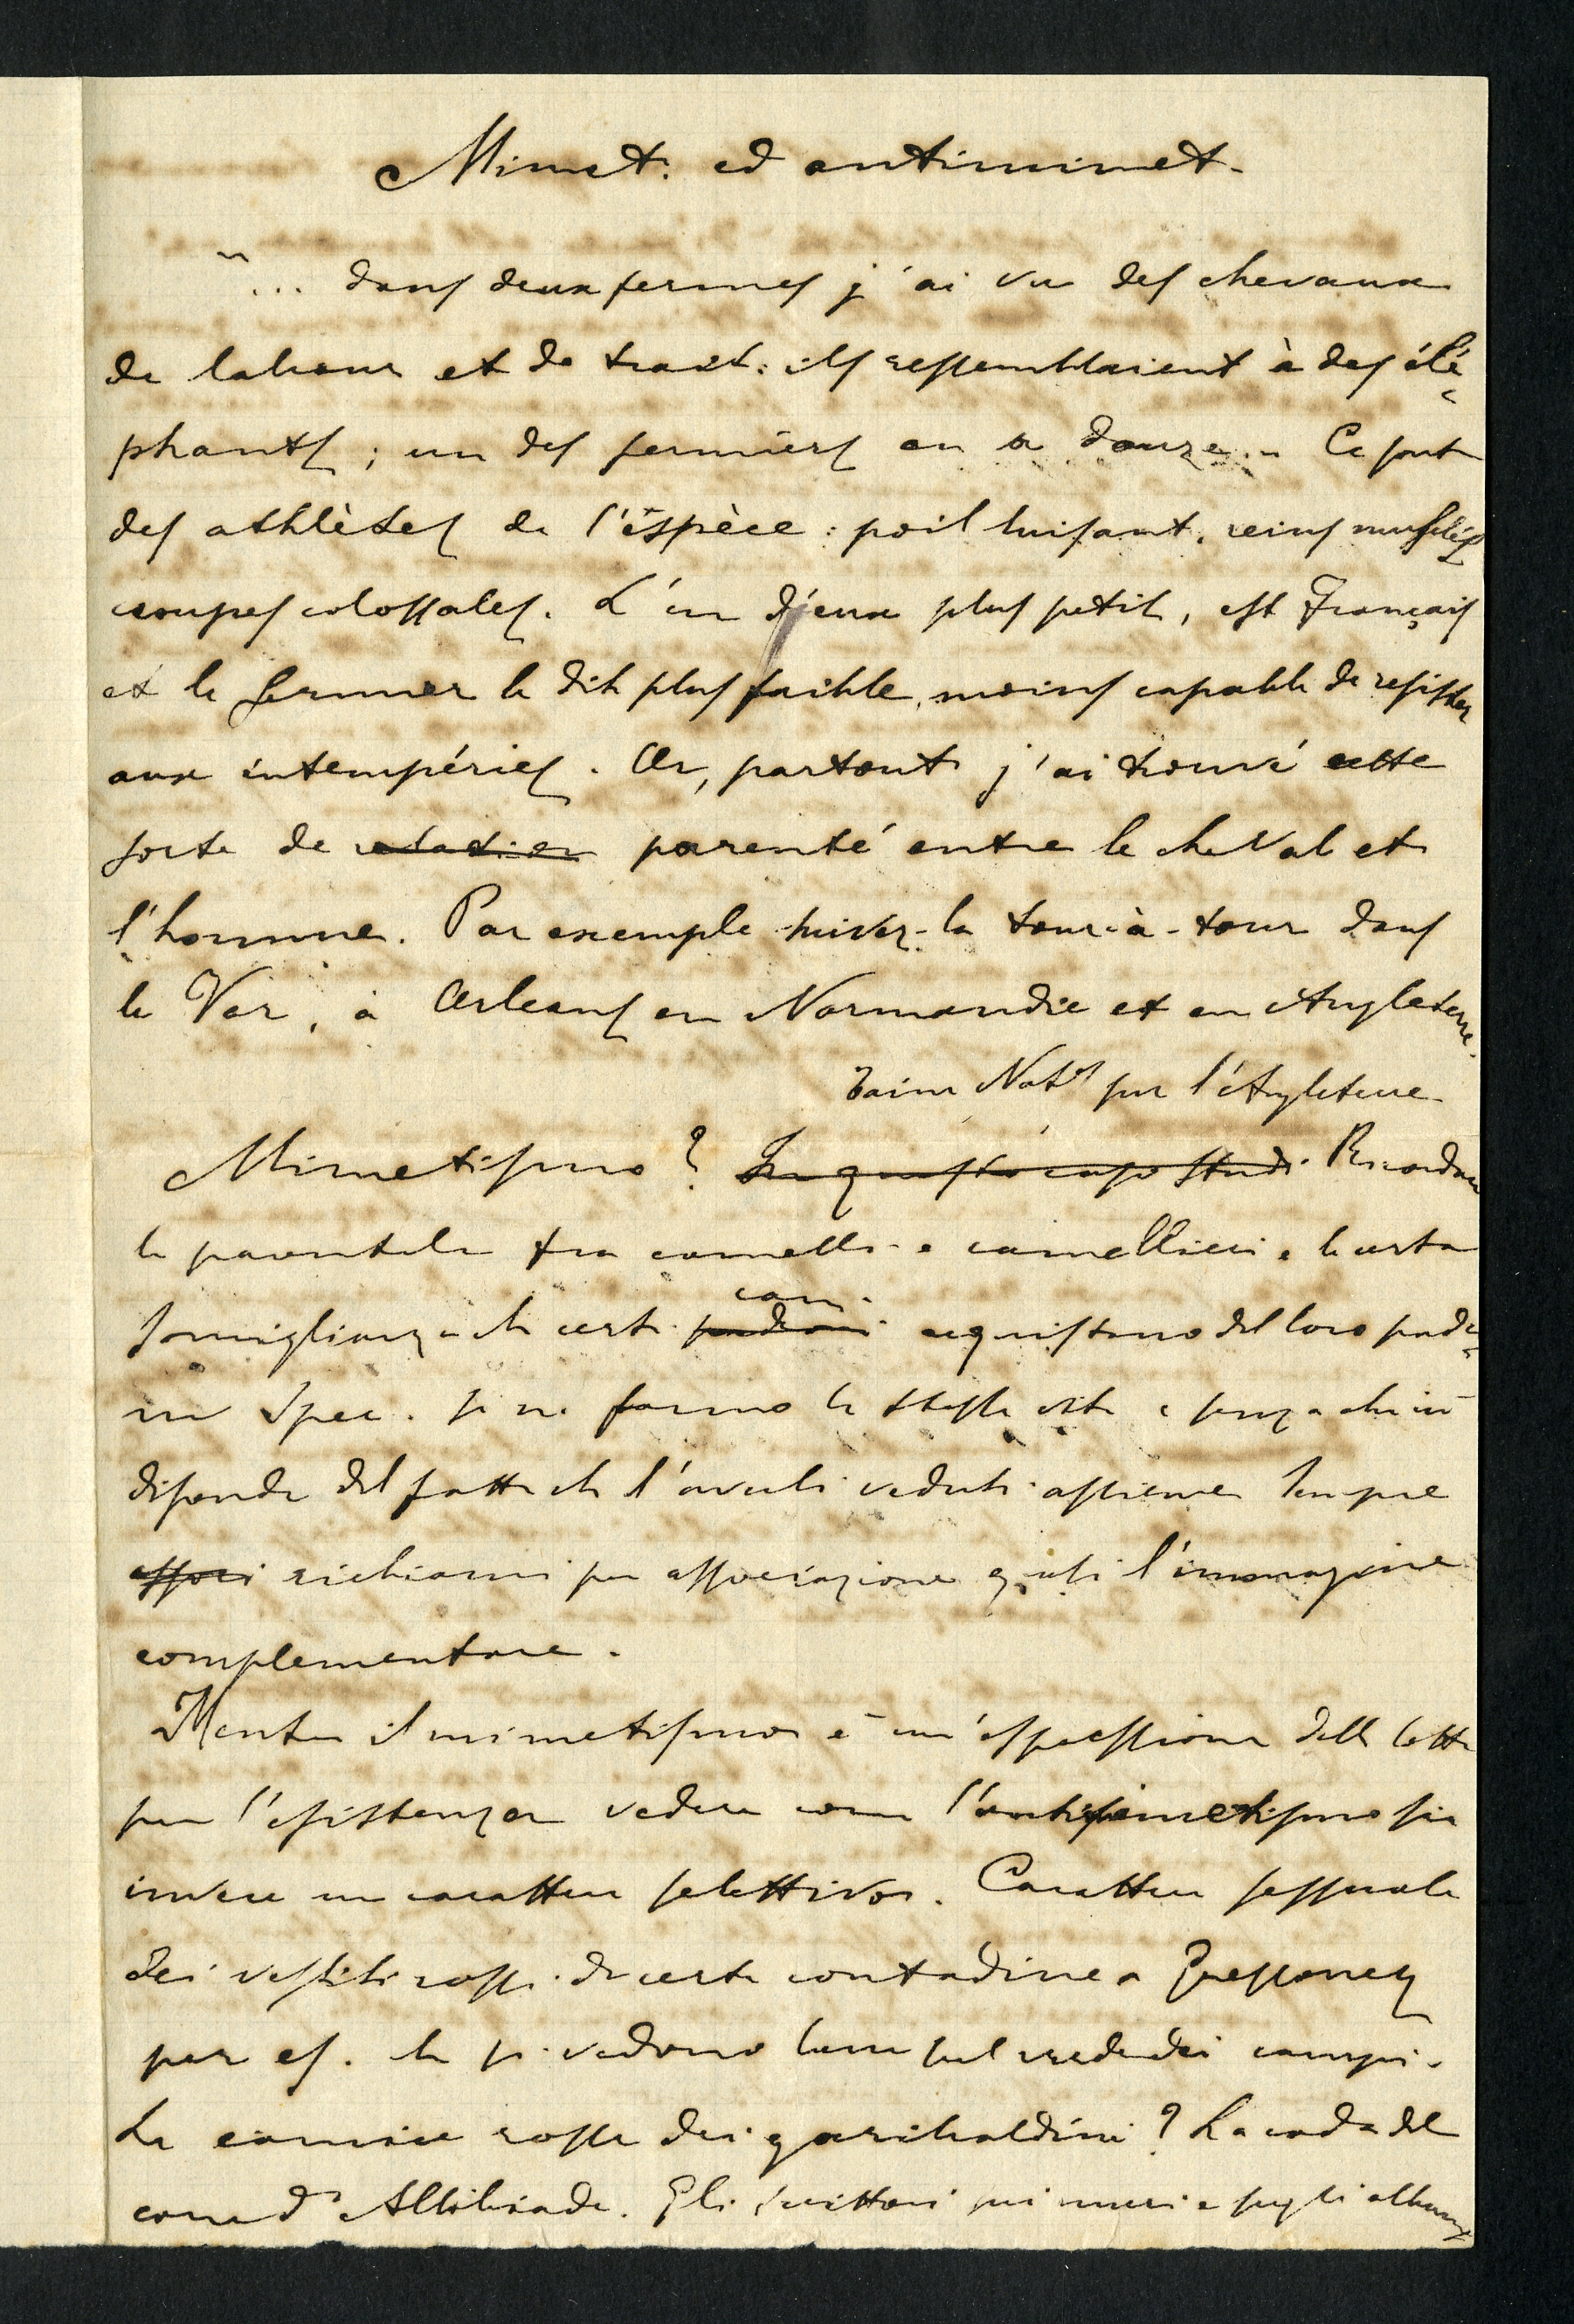 Mimet. ed antimimet.
"... dans deux fermes j'ai vu des chevaux
de labour et de trait: ils ressemblaient à des élé-
phants; un des fermiers en a douze. Ce sont
des athlètes de l'espèce: poil luisant, reins musclés
croupes colossales. L'un d'eux plus petit, est Français
et le fermier le dit plus faible, moins capable de resister
aux intempéries. Or, partout j'ai trouvé cette
sorte de relation parenté entre le cheval et
l'homme. Par exemple suivez-la tour-à-tour dans
le Var, à Orleans en Normandie et en Angleterre.
Taine Notes sur l'Angleterre
Mimetismo? In questo caso studi. Ricordare
la parentela tra cammelli e camellieri e la certa
somiglianza che certi padroni cani acquistano del loro padro-
ne spec. se ne fanno la stessa vita e senza che ciò
dipenda dal fatto che l'averli veduti assieme sempre
associ richiami per associazione quasi l'immagine
complementare.
Mentre il mimetismo è un'espressione della lotta
per l'esistenza vedere come l'antimimetismo sia
invece un carattere selettivo. Carattere sessuale
dei vestiti rossi di certe contadine a Bressanez
per es. che si vedono bene sul verde dei campi.
La camicia rossa dei garibaldini? La coda del
cane d'Alcibiade. Gli scrittori sui muri e sugli albums